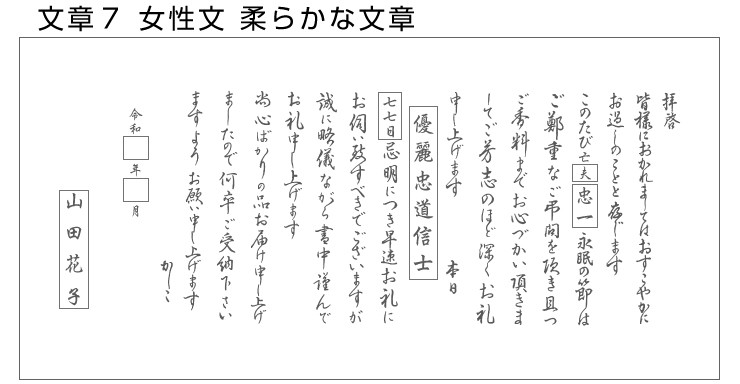 文章７ 女性文 柔らかな文章
拝啓
皆様におかれましてはおすこやかに
お過しのことと存じます
このたび亡夫忠一永眠の節は
ご鄭重なご弔問を頂き且つ
ご香料までお心づかい頂きま
してご芳志のほど深くお礼
申し上げます 本日
優麗忠道信士
七七日忌明につき早速お礼に
お伺い致すべきでございますが
誠に略儀ながら書中謹んで
お礼申し上げます
尚心ばかりの品お届け申し上げ
ましたので何卒ご受納下さい
ますようお願い申し上げます
かしこ
令和 年 月
山田花子